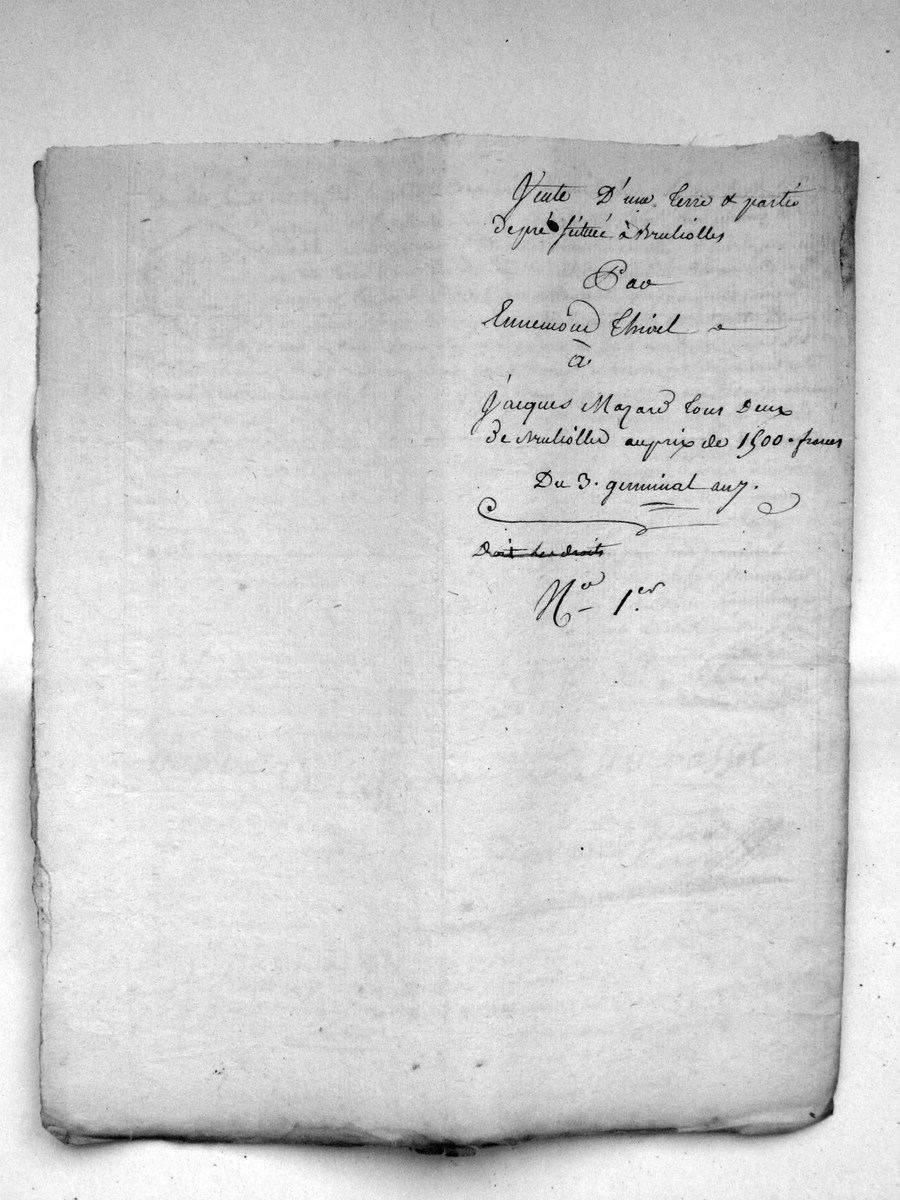 Vente D'une terre & partie
de pré située à Bruliolles
Par
Ennemond Thivel
à
Jacques Mazard tous deux
de Bruliolles au prix de 1500 francs
Du 3. germinal an 7.
Doit les droits
N.º 1.er